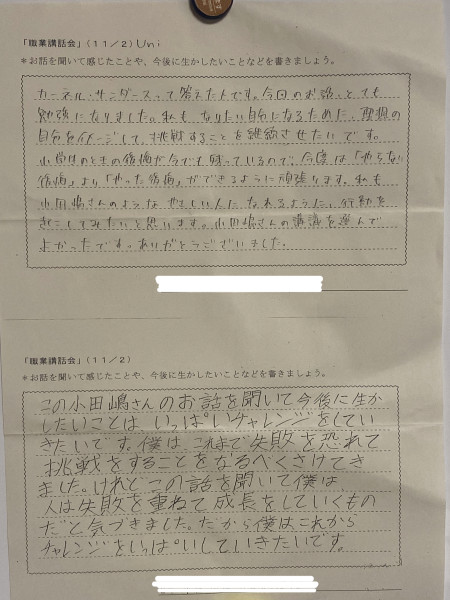 「職業講話会」(11/2) Uni
＊お話を聞いて感じたことや、今後に生かしたいことなどを書きましょう。
カーネル・サンダースって答えた人です。今回のお話、とても
勉強になりました。私も、なりたい自分になるため、理想の
自分をイメージして、挑戦することを継続させたいです。
小学生のときの後悔が今でも残っているので、今度は「やらない
後悔」より「やった後悔」ができるように頑張ります。私も
小田嶋さんのような、やさしい人になれるように、行動を
起こしてみたいと思います。小田嶋さんの講議を選んで
よかったです。ありがとうございました。
「職業講話会」(11/2)
＊お話を聞いて感じたことや、今後に生かしたいことなどを書きましょう。
この小田嶋さんのお話を聞いて今後に生か
したいことは、いっぱいチャレンジをしてい
きたいです。僕は、これまで失敗を恐れて
挑戦をすることをなるべくさけてき
ました。けれどこの話を聞いて僕は
人は失敗を重ねて成長をしていくもの
だと気づきました。だから僕はこれから
チャレンジをいっぱいしていきたいです。